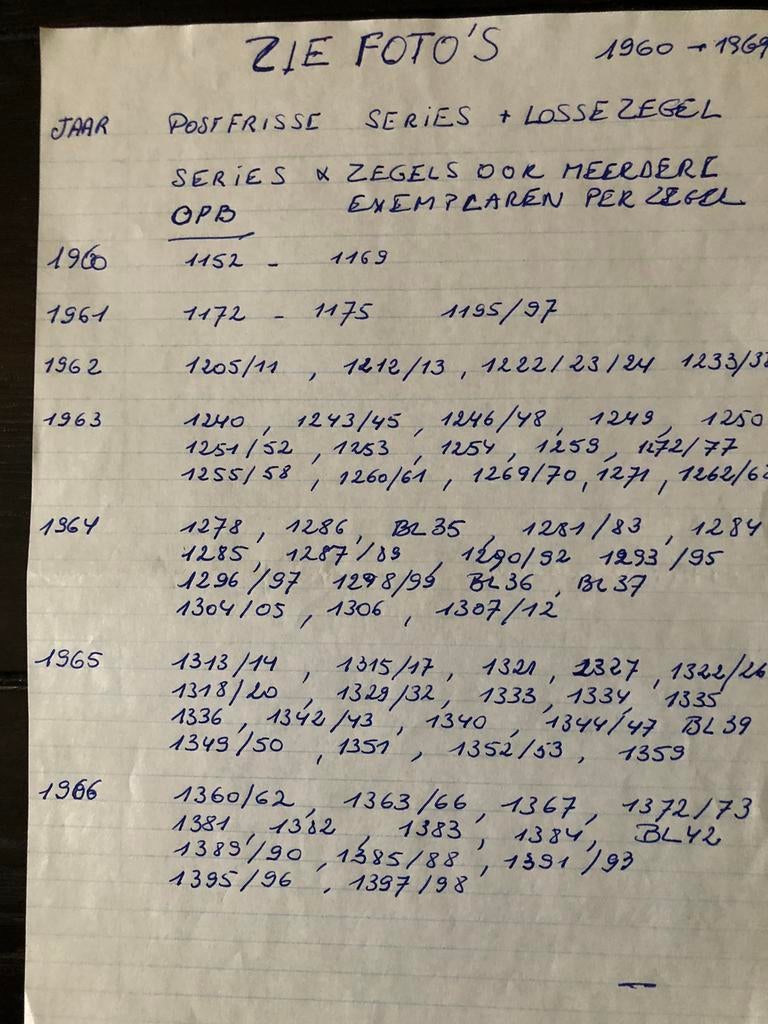 ZIE FOTO'S 1960 → 1969
JAAR POSTFRISSE SERIES + LOSSE ZEGEL
SERIES & ZEGELS OOK MEERDERE
OPB EXEMPLAREN PER ZEGEL
1960 1152 - 1169
1961 1172 - 1175 1195/97
1962 1205/11 , 1212/13 , 1222/23/24 1233/3
1963 1240 , 1243/45 , 1246/48 , 1249 , 1250
1251/52 , 1253 , 1254 , 1259 , 1272/77
1255/58 , 1260/61 , 1269/70 , 1271 , 1262/6
1964 1278 , 1286 , BL35 , 1281/83 , 1284
1285 , 1287/89 , 1290/92 1293/95
1296/97 1298/99 BL36 , BL37
1304/05 , 1306 , 1307/12
1965 1313/14 , 1315/17 , 1321 , 1327 , 1322/26
1318/20 , 1329/32 , 1333 , 1334 , 1335
1336 , 1342/43 , 1340 , 1344/47 BL39
1349/50 , 1351 , 1352/53 , 1359
1966 1360/62 , 1363/66 , 1367 , 1372/73
1381 , 1382 , 1383 , 1384 , BL42
1389/90 , 1385/88 , 1391/93
1395/96 , 1397/98